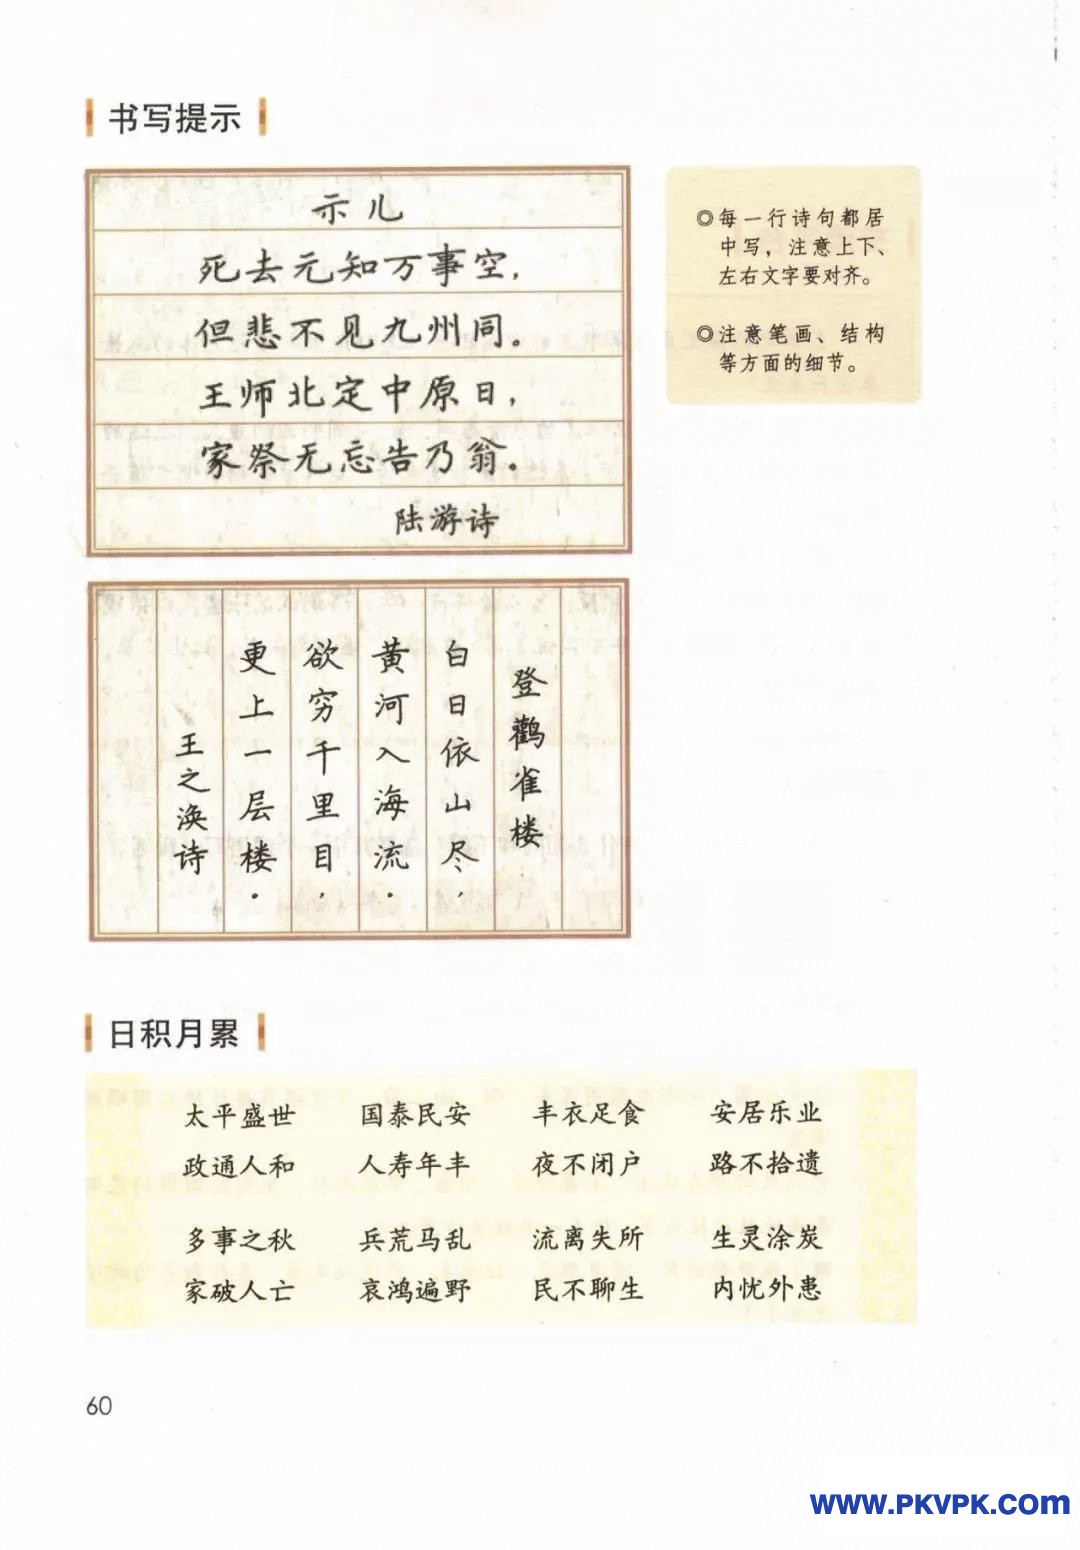 书写提示
示儿
死去元知万事空，
但悲不见九州同。
王师北定中原日，
家祭无忘告乃翁。
陆游诗
◎每一行诗句都居
中写，注意上下、
左右文字要对齐。
◎注意笔画、结构
等方面的细节。
登鹳雀楼
白日依山尽，
黄河入海流。
欲穷千里目，
更上一层楼。
王之涣诗
日积月累
太平盛世 国泰民安 丰衣足食 安居乐业
政通人和 人寿年丰 夜不闭户 路不拾遗
多事之秋 兵荒马乱 流离失所 生灵涂炭
家破人亡 哀鸿遍野 民不聊生 内忧外患
60
www.PKVPK.com